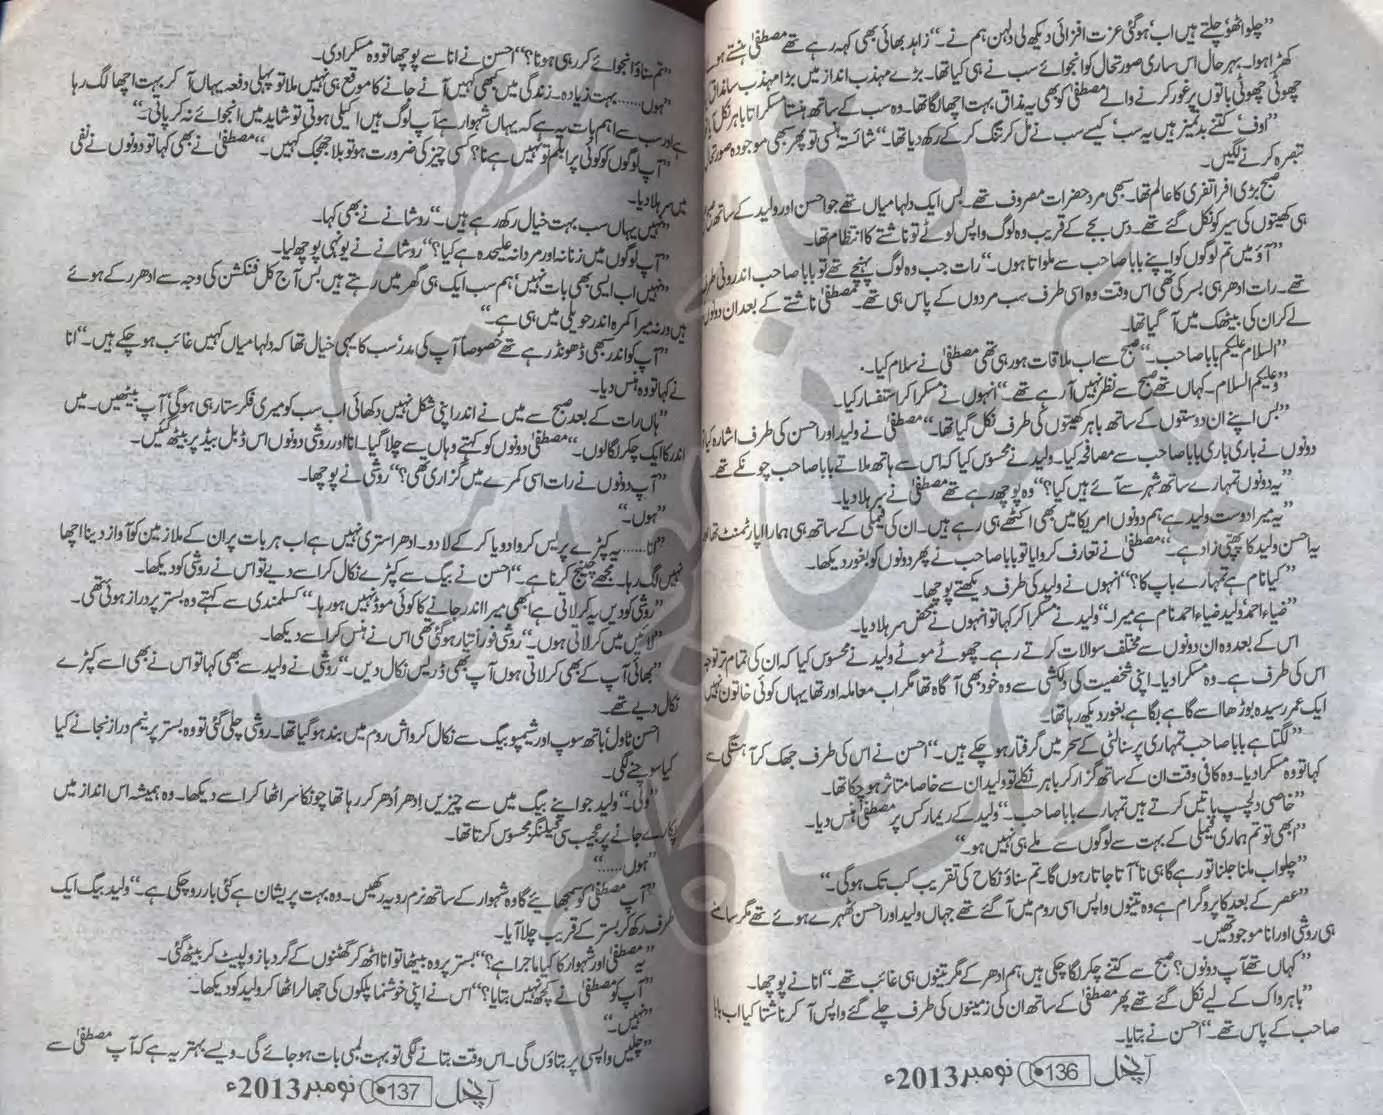 ”چلو اٹھو‘ چلتے ہیں اب‘ ہوگئی عزت افزائی دیکھ لی دلہن ہم نے۔“ زاہد بھائی بھی کہہ رہے تھے مصطفیٰ ہنستے ہوئے
کھڑا ہوا۔ بہرحال اس ساری صورتحال کو انجوائے سب نے ہی کیا تھا۔ بڑے مہذب انداز میں بڑا مہذب سا مذاق
چھوٹی چھوٹی باتوں پر غور کرنے والے مصطفیٰ کو بھی یہ مذاق بہت اچھا لگا تھا۔ وہ سب کے ساتھ ہنستا مسکراتا باہر نکل
”اوف‘ کتنے بدتمیز ہیں یہ سب‘ کیسے سب نے مل کر تنگ کرکے رکھ دیا تھا۔“ شائستہ ہنسی تو پھر سبھی موجودہ صورتحال
تبصرہ کرنے لگیں۔
صبح بڑی افراتفری کا عالم تھا۔ سبھی مرد حضرات مصروف تھے۔ بس ایک دلہا میاں تھے جو احسن اور ولید کے ساتھ صبح
ہی کھیتوں کی سیر کو نکل گئے تھے۔ دس بجے کے قریب وہ لوگ واپس لوٹے تو ناشتے کا انتظام تھا۔
”آؤ میں تم لوگوں کو اپنے بابا صاحب سے ملواتا ہوں۔“ رات جب وہ لوگ پہنچے تھے تو بابا صاحب اندرونی طرف
تھے۔ رات ادھر ہی بسر کی تھی اس وقت وہ اسی طرف سب مردوں کے پاس ہی تھے۔ مصطفیٰ ناشتے کے بعد ان دونوں
لے کر ان کی بیٹھک میں آ گیا تھا۔
”السلام علیکم بابا صاحب۔“ صبح سے اب ملاقات ہو رہی تھی مصطفیٰ نے سلام کیا۔
”وعلیکم السلام۔ کہاں تھے صبح سے نظر نہیں آ رہے تھے۔“ انہوں نے مسکرا کر استفسار کیا۔
”بس اپنے ان دوستوں کے ساتھ باہر کھیتوں کی طرف نکل گیا تھا۔“ مصطفیٰ نے ولید اور احسن کی طرف اشارہ کیا
دونوں نے باری باری بابا صاحب سے مصافحہ کیا۔ ولید نے محسوس کیا کہ اس سے ہاتھ ملاتے بابا صاحب چونکے تھے۔
”یہ دونوں تمہارے ساتھ شہر سے آئے ہیں کیا؟“ وہ پوچھ رہے تھے مصطفیٰ نے سر ہلا دیا۔
”یہ میرا دوست ولید ہے ہم دونوں امریکا میں بھی اکٹھے ہی رہے ہیں۔ ان کی فیملی کے ساتھ ہی ہمارا اپارٹمنٹ تھا اور
یہ احسن ولید کا پھپی زاد ہے۔“ مصطفیٰ نے تعارف کروایا تو بابا صاحب نے پھر دونوں کو بغور دیکھا۔
”کیا نام ہے تمہارے باپ کا؟“ انہوں نے ولید کی طرف دیکھتے پوچھا۔
”ضیاء احمد‘ ولید ضیاء احمد نام ہے میرا۔“ ولید نے مسکرا کر کہا تو انہوں نے محض سر ہلا دیا۔
اس کے بعد وہ ان دونوں سے مختلف سوالات کرتے رہے۔ چھوٹے موٹے ولید نے محسوس کیا کہ ان کی تمام تر توجہ
اس کی طرف ہے۔ وہ مسکرا دیا۔ اپنی شخصیت کی دلکشی سے وہ خود بھی آگاہ تھا مگر اب معاملہ اور تھا یہاں کوئی خاتون نہیں
ایک عمر رسیدہ بوڑھا اسے گاہے بگاہے بغور دیکھ رہا تھا۔
”لگتا ہے بابا صاحب تمہاری پرسنالٹی کے سحر میں گرفتار ہو چکے ہیں۔“ احسن نے اس کی طرف جھک کر آہستگی سے
کہا تو وہ مسکرا دیا۔ وہ کافی وقت ان کے ساتھ گزار کر باہر نکلے تو ولید ان سے خاصا متاثر ہو چکا تھا۔
”خاصی دلچسپ باتیں کرتے ہیں تمہارے بابا صاحب۔“ ولید کے ریمارکس پر مصطفیٰ ہنس دیا۔
”ابھی تو تم ہماری فیملی کے بہت سے لوگوں سے ملے ہی نہیں ہو۔“
”چلو اب ملنا جلنا تو رہے گا ہی نا‘ آتا جاتا رہوں گا۔ تم سناؤ نکاح کی تقریب کب تک ہوگی۔“
”عصر کے بعد کا پروگرام ہے وہ تینوں واپس اسی روم میں آ گئے تھے جہاں ولید اور احسن ٹھہرے ہوئے تھے مگر سامنے
ہی روشی اور انا موجود تھیں۔
”کہاں تھے آپ دونوں؟ صبح سے کتنے چکر لگا چکی ہیں ہم ادھر کے مگر تینوں ہی غائب تھے۔“ انا نے پوچھا۔
”باہر واک کے لیے نکل گئے تھے پھر مصطفیٰ کے ساتھ ان کی زمینوں کی طرف چلے گئے واپس آ کر ناشتا کیا اب بابا
صاحب کے پاس تھے۔“ احسن نے بتایا۔
آنچل 136 نومبر 2013ء
”تم سناؤ انجوائے کر رہی ہو نا؟“ احسن نے انا سے پوچھا تو وہ مسکرا دی۔
”ہوں...... بہت زیادہ۔ زندگی میں کبھی کہیں آنے جانے کا موقع ہی نہیں ملا تو پہلی دفعہ یہاں آ کر بہت اچھا لگ رہا
ہے اور سب سے اہم بات یہ ہے کہ یہاں شہوار ہے آپ لوگ ہیں اکیلی ہوتی تو شاید میں انجوائے نہ کر پاتی۔“
”آپ لوگوں کو کوئی پرابلم تو نہیں ہے نا؟ کسی چیز کی ضرورت ہو تو بلا جھجک کہیں۔“ مصطفیٰ نے بھی کہا تو دونوں نے نفی
میں سر ہلا دیا۔
”نہیں یہاں سب بہت خیال رکھ رہے ہیں۔“ روشانے نے بھی کہا۔
”آپ لوگوں میں زنانہ اور مردانہ علیحدہ ہے کیا؟“ روشانے نے یونہی پوچھ لیا۔
”نہیں اب ایسی بھی بات نہیں‘ ہم سب ایک ہی گھر میں رہتے ہیں بس آج کل فنکشن کی وجہ سے ادھر رکے ہوئے
ہیں ورنہ میرا کمرہ اندر حویلی میں ہی ہے۔“
”آپ کو اندر سبھی ڈھونڈ رہے تھے خصوصاً آپ کی مدر‘ سب کا یہی خیال تھا کہ دلہا میاں کہیں غائب ہو چکے ہیں۔“ انا
نے کہا تو وہ ہنس دیا۔
”ہاں رات کے بعد صبح سے میں نے اندر اپنی شکل نہیں دکھائی اب سب کو میری فکر ستا رہی ہوگی‘ آپ بیٹھیں۔ میں
اندر کا ایک چکر لگا لوں۔“ مصطفیٰ دونوں کو کہتے وہاں سے چلا گیا۔ انا اور روشی دونوں اس ڈبل بیڈ پر بیٹھ گئیں۔
”آپ دونوں نے رات اسی کمرے میں گزاری تھی؟“ روشی نے پوچھا۔
”ہوں۔“
”انا...... یہ کپڑے پریس کروا دو یا کر کے لا دو۔ ادھر استری نہیں ہے اب ہر بات پر ان کے ملازمین کو آواز دینا اچھا
نہیں لگ رہا۔ مجھے چینج کرنا ہے۔“ احسن نے بیگ سے کپڑے نکال کر اسے دیے تو اس نے روشی کو دیکھا۔
”روشی کو دیں یہ کر لاتی ہے ابھی میرا اندر جانے کا کوئی موڈ نہیں ہو رہا۔“ کسلمندی سے کہتے وہ بستر پر دراز ہوئی تھی۔
”لائیں میں کر لاتی ہوں۔“ روشی فوراً تیار ہوگئی تھی اس نے ہنس کر اسے دیکھا۔
”بھائی آپ کے بھی کر لاتی ہوں آپ بھی ڈریس نکال دیں۔“ روشی نے ولید سے بھی کہا تو اس نے بھی اسے کپڑے
نکال دیے تھے۔
احسن ٹاول‘ باتھ سوپ اور شیمپو بیگ سے نکال کر واش روم میں بند ہوگیا تھا۔ روشی چلی گئی تو وہ بستر پر نیم دراز نجانے کیا
کیا سوچنے لگی۔
”ولی۔“ ولید جو اپنے بیگ میں سے چیزیں اِدھر اُدھر کر رہا تھا چونکا سر اٹھا کر اسے دیکھا۔ وہ ہمیشہ اس انداز میں
پکارے جانے پر عجیب سی فیلنگز محسوس کرتا تھا۔
”ہوں......“
”آپ مصطفیٰ کو سمجھائیے گا وہ شہوار کے ساتھ نرم رویہ رکھیں۔ وہ بہت پریشان ہے کئی بار رو چکی ہے۔“ ولید بیگ ایک
طرف رکھ کر بستر کے قریب چلا آیا۔
”یہ مصطفیٰ اور شہوار کا کیا ماجرا ہے؟“ بستر پر وہ بیٹھا تو انا اٹھ کر گھٹنوں کے گرد بازو لپیٹ کر بیٹھ گئی۔
”آپ کو مصطفیٰ نے کچھ نہیں بتایا؟“ اس نے اپنی خوشنما پلکوں کی جھالر اٹھا کر ولید کو دیکھا۔
”نہیں۔“
”چلیں واپسی پر بتاؤں گی۔ اس وقت بتانے لگی تو بہت لمبی بات ہو جائے گی۔ ویسے بہتر یہ ہے کہ آپ مصطفیٰ سے
آنچل 137 نومبر 2013ء